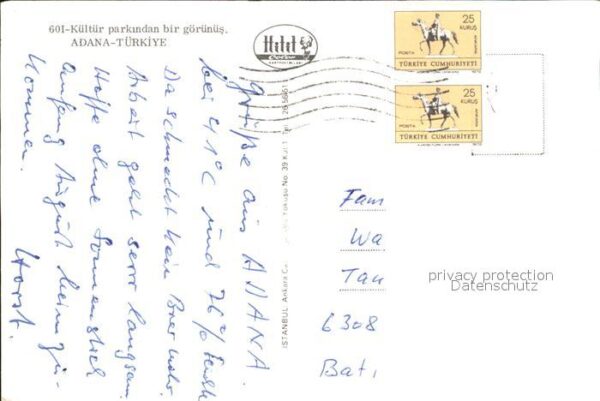 601-Kültür parkından bir görünüş.
ADANA-TÜRKİYE
Hitit
25
KURUŞ
POSTA
TÜRKİYE CUMHURİYETİ
25
KURUŞ
POSTA
TÜRKİYE CUMHURİYETİ
Grüße aus ADANA.
bei 41°C und 76%
Da schmeckt kein Bier mehr.
Arbeit geht sehr langsam.
Hoffe ohne Sonnenstich
Anfang August heimzu-
kommen.
Horst.
İSTANBUL: Ankara Ca Yokuşu No: 39 Ku
Fam
Wa
Tau
6308
Bat
privacy protection
Datenschutz